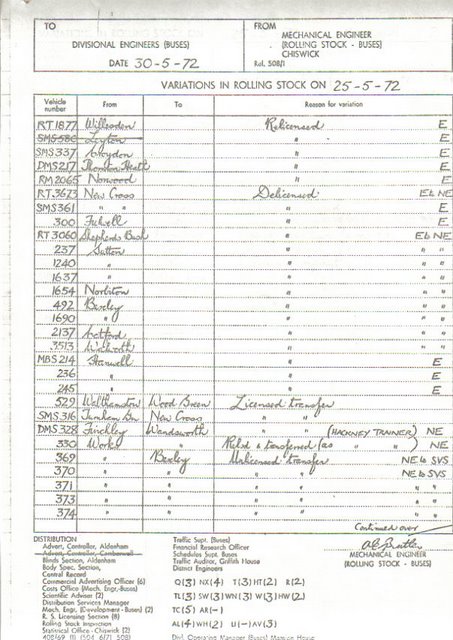 TO
DIVISIONAL ENGINEERS (BUSES)
DATE 30-5-72
FROM
MECHANICAL ENGINEER
(ROLLING STOCK - BUSES)
CHISWICK
Rol. 508/1
VARIATIONS IN ROLLING STOCK ON 25-5-72
Vehicle number From To Reason for variation
RT1877 Willesden Relicensed E
SMS580 Leyton " E
SMS337 Croydon " E
DMS217 Thornton Heath " E
RM2065 Norwood " E
RT.3673 New Cross Delicensed E to NE
SMS361 " " E
300 Fulwell " E
RT3060 Shepherds Bush " E to NE
237 Sutton " " "
1240 " " " "
1637 " " " "
1654 Norbiton " " "
492 Bexley " " "
1690 " " " "
2137 Catford " " "
3513 Walworth " " "
MBS214 Stanwell " E
236 " " E
245 " " E
529 Walthamstow Wood Green Licensed transfer
SMS.316 Turnham Gn New Cross " "
DMS328 Finchley Wandsworth " " (HACKNEY TRAINER) NE
330 Works " Relsd & transferred (as " " ) NE
369 " Bexley Unlicensed transfer NE to SVS
370 " " " " NE to SVS
371 " " " " " "
373 " " " " " "
374 " " " " " "
Continued over
DISTRIBUTION
Advert. Controller, Aldenham
Advert. Controller, Camberwell
Blinds Section, Aldenham
Body Spec. Section,
Central Record
Commercial Advertising Officer (6)
Costs Office (Mech. Engr.-Buses)
Scientific Adviser (2)
Distribution Services Manager
Mech. Engr. (Development - Buses) (2)
R. S. Licensing Section (8)
Rolling Stock Inspection
Statistical Office - Chiswick (2)
Traffic Supt. (Buses)
Financial Research Officer
Schedules Supt. Buses
Traffic Auditor, Griffith House
District Engineers
Q(3) NX(4) T(3) HT(2) R(2)
TL(3) SW(3) WN(3) W(3) HW(2)
TC(5) AR(-)
AL(4) WH(2) U(-) AV(3)
Divl. Operating Manager (Buses) Mansion House
MECHANICAL ENGINEER
(ROLLING STOCK - BUSES)